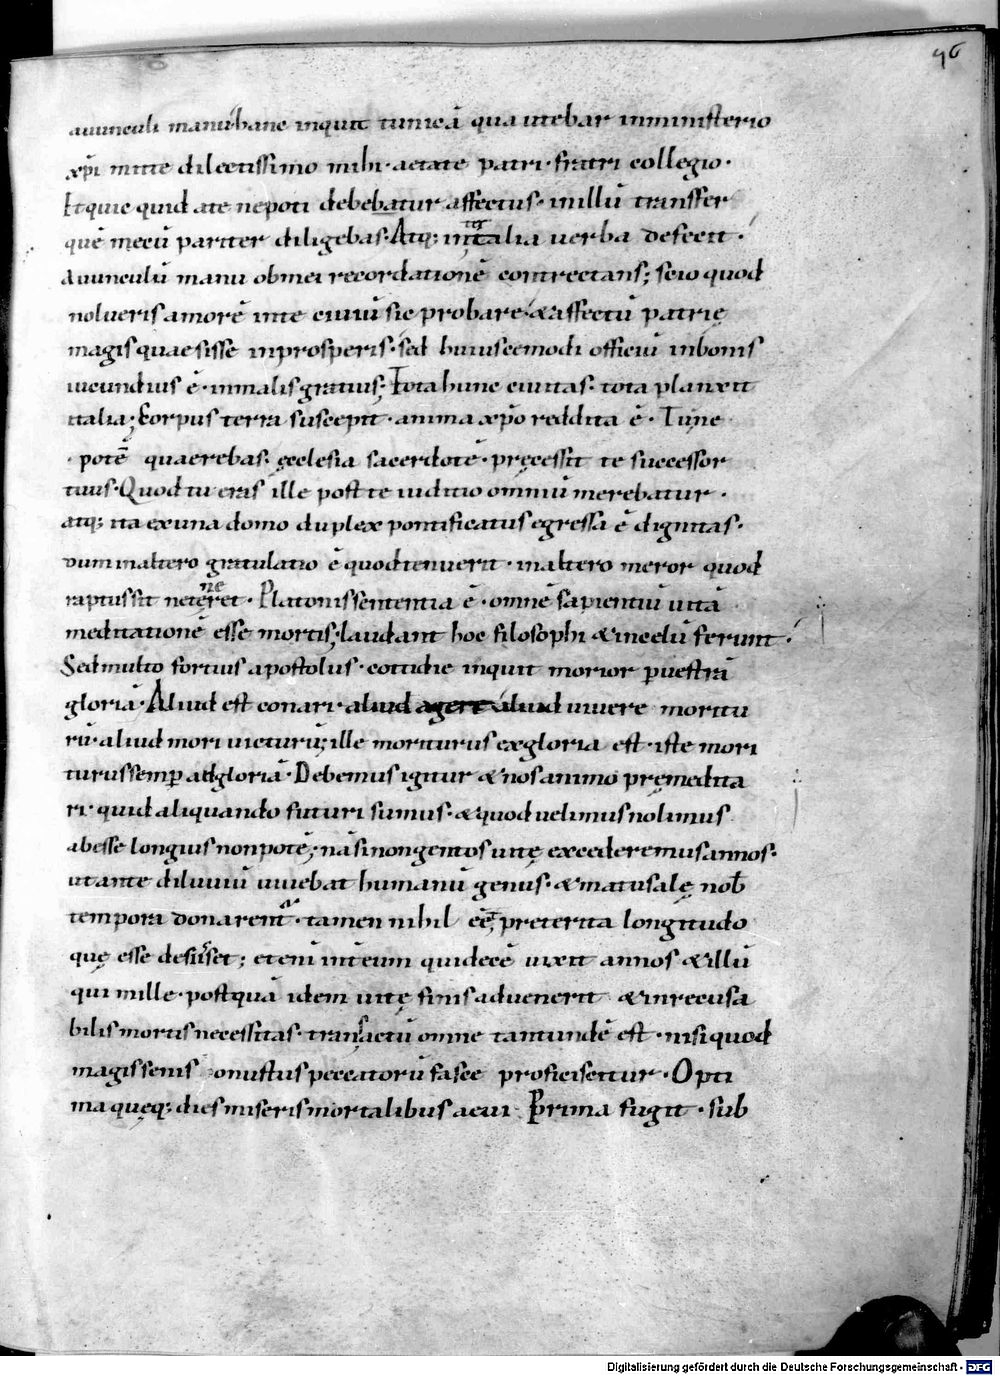 96
auunculi manū hanc inquit tunicā qua utebar inministerio
xp̄i mitte dilectissimo mihi · aetate patri · fratri collegio ·
Et quic quid ate nepoti debebatur affectus · inillū transfer
quē mecū pariter diligebas · Atq; int talia uerba defecit ·
Auunculū manu obmei recordationē contrectans; scio quod
nolueris amorē inte ciuiū sic probare · & affectū patrię
magis quaesisse inprosperis · sed huiuscemodi officiū inbonis
iucundius ē · inmalis gratius; Tota hunc ciuitas · tota planxit
italia; Corpus terra suscepit · anima xp̄o reddita ē · Tu ne
potē quaerebas · ęcclesia sacerdotē · pręcessit te successor
tuus · Quod tu eras ille post te iuditio omniū merebatur ·
atq; ita ex una domo duplex pontificatus egressa ē dignitas ·
dum inaltero gratulatio ē quod tenuerit · inaltero meror quod
raptus sit ne teneret · Platonis sententia ē · omnē sapientiū uitā
meditationē esse mortis; laudant hoc filosophi & incelū ferunt ·
Sed multo fortius apostolus · cottidie inquit morior p uestrā
gloriā · Aliud est conari · aliud agere aliud uiuere moritu
rū · aliud mori uicturū; ille moriturus ex gloria est · iste mori
turus semp ad gloriā · Debemus igitur & nos animo pręmedita
ri · quid aliquando futuri sumus · & quod uelimus nolimus
abesse longius non potē; nā si nongentos uitę excederemus annos ·
ut ante diluuiū uiuebat humanū genus · & matusalę nob̄
tempora donarent · tamen nihil eēt pręterita longitudo
quę esse desiisset; etenī int eum qui decē uixit annos & illū
qui mille · postquā idem uitę finis aduenerit & inrecusa
bilis mortis necessitas · transactū omne tantundē est · nisi quod
magis senis onustus peccatorū fasce proficiscitur · Opti
ma quęq; dies miseris mortalibus aeui Prima fugit · sub
Digitalisierung gefördert durch die Deutsche Forschungsgemeinschaft - DFG